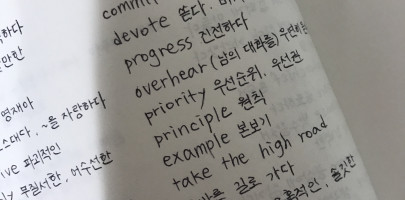 하다
만한
영재아
스대다, ~을 사랑하다
ive 파괴적인
ly 무질서한, 어수선한
commi
devote 쏟다, 바
progress 진전하다
overhear (남의 대화를) 우연히 듣
priority 우선순위, 우선권
principle 원칙
example 본보기
take the high road
바른 길로 가다
솔직한